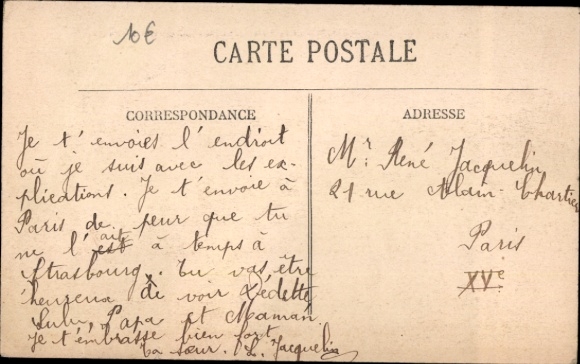 10€
CARTE POSTALE
CORRESPONDANCE
Je t'envoies l'endroit
où je suis avec les ex-
plications. Je t'envoie à
Paris de peur que tu
ne l'ait à temps à
Strasbourg. Tu vas être
heureux de voir Dédette,
Lulu, Papa et Maman.
Je t'embrasse bien fort
ta sœur. L. Jacquelin
ADRESSE
Mr. René Jacquelin
21 rue Alain-Chartier
Paris
XVe